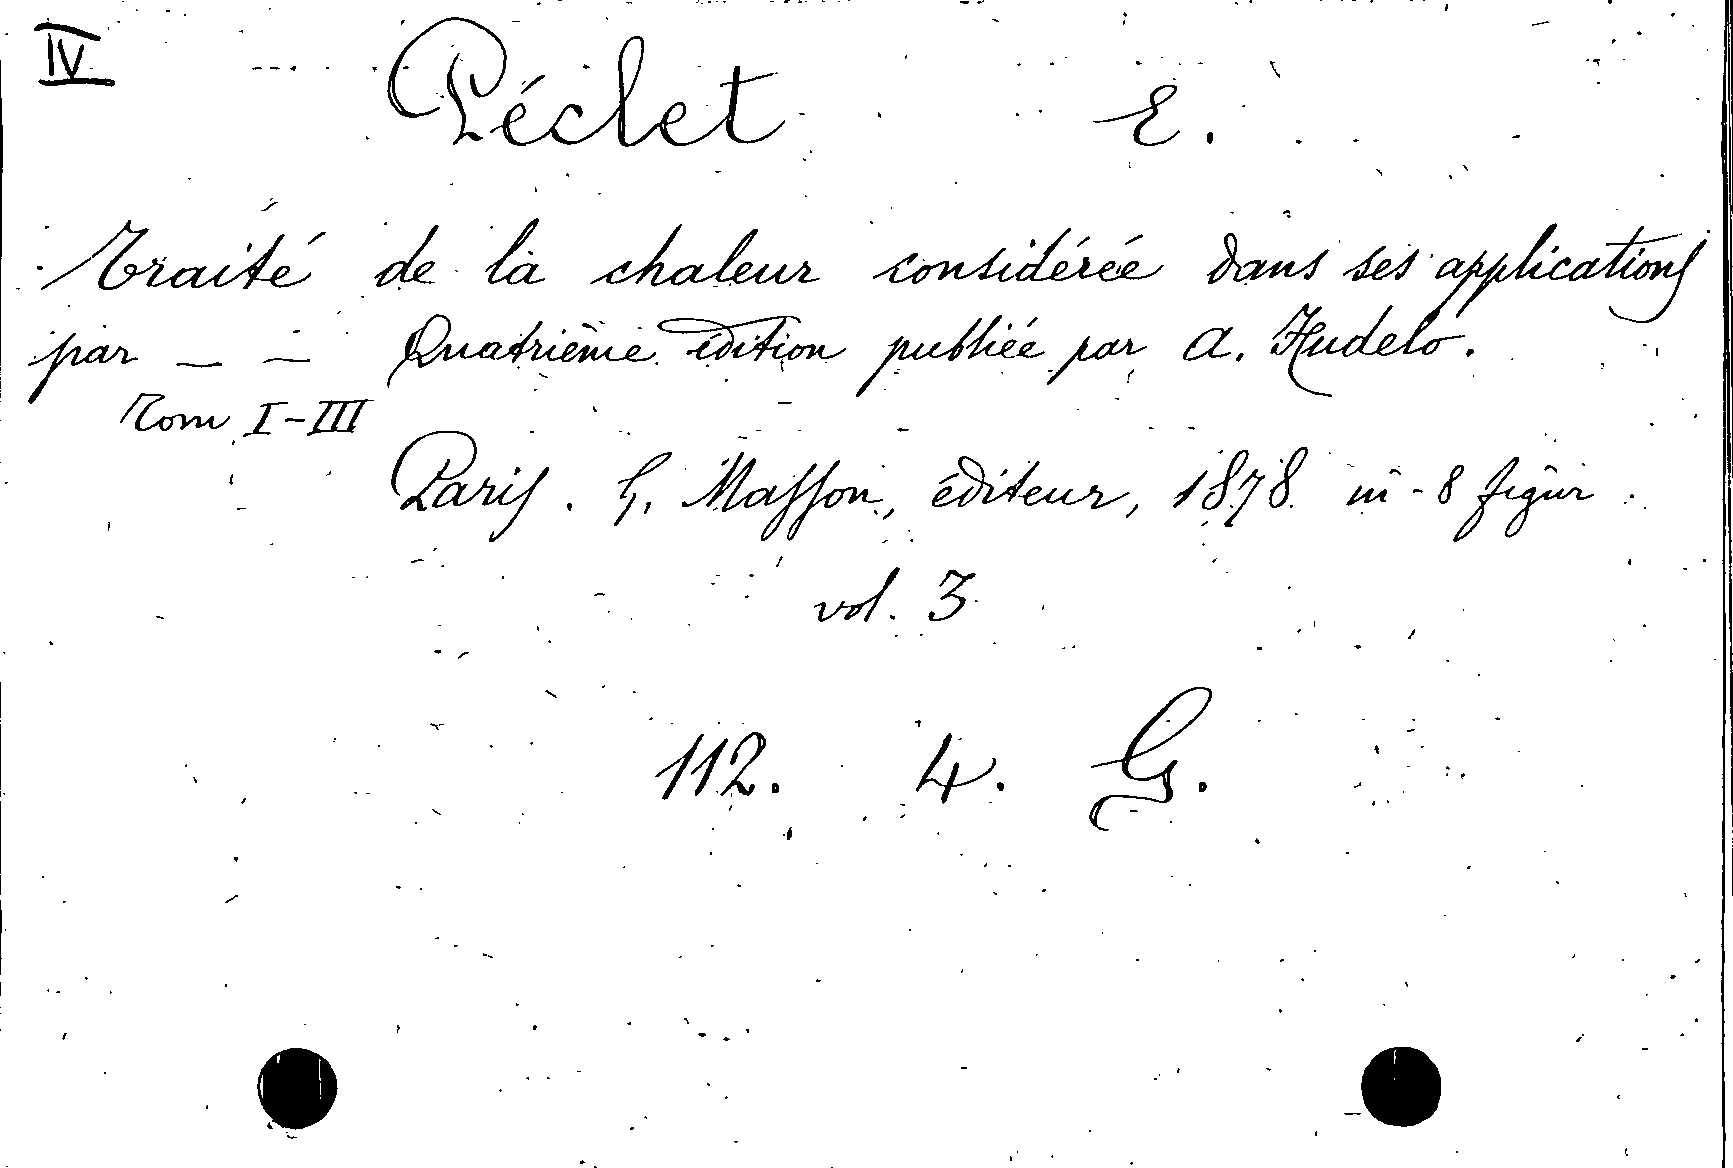 IV
Péclet E.
Traité de la chaleur considérée dans ses applications
par — — Quatrième édition publiée par A. Hudelo.
Tom I-III
Paris. G. Masson, éditeur, 1878 in-8 figur.
vol. 3
112. 4. G.